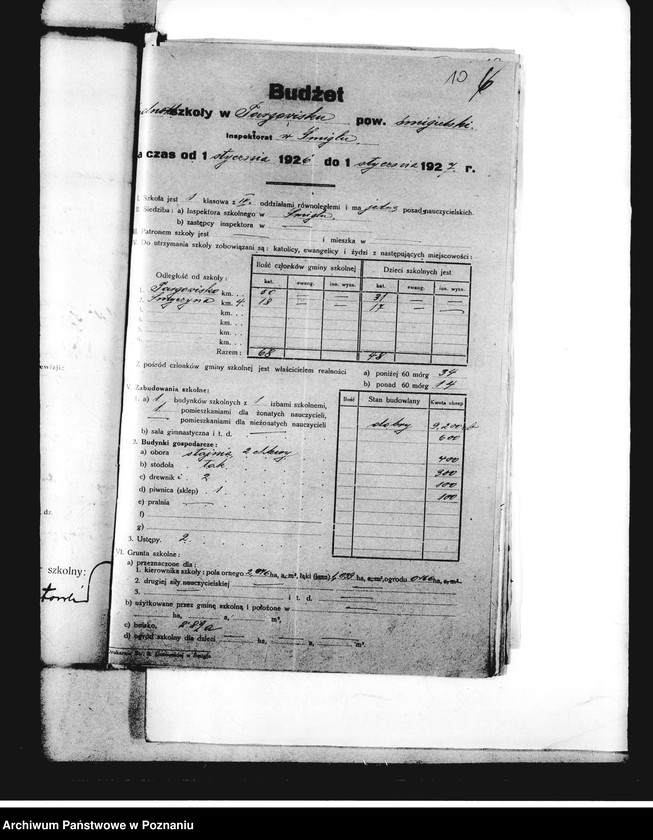 10 6
Budżet
szkoły w Targowisku pow. śmigielski.
Inspektorat w Śmiglu
czas od 1 stycznia 1926 do 1 stycznia 1927. r.
I. Szkoła jest 1 klasowa z IV. oddziałami równoległemi i ma jedną posad nauczycielskich.
II. Siedziba: a) Inspektora szkolnego w Śmiglu.
b) zastępcy inspektora w
III. Patronem szkoły jest i mieszka w
IV. Do utrzymania szkoły zobowiązani są: katolicy, ewangelicy i żydzi z następujących miejscowości:
Odległość od szkoły: Ilość członków gminy szkolnej Dzieci szkolnych jest
kat. ewang. inn. wyzn. kat. ewang. inn. wyzn.
1. Targowisko km. 50 — — 31 — —
2. km. 4. 18 — — 17 — —
3. km.
4. km.
5. km.
6. km.
Razem: 68 48
Z pośród członków gminy szkolnej jest właścicielem realności a) poniżej 60 mórg 34
b) ponad 60 mórg 14
V. Zabudowania szkolne: Ilość Stan budowlany Kwota ubezp
1. a) 1 budynków szkolnych z 1 izbami szkolnemi, dobry 9,200
1 pomieszkaniami dla żonatych nauczycieli, 600
— pomieszkaniami dla nieżonatych nauczycieli
b) sala gimnastyczna i t. d. —
2. Budynki gospodarcze:
a) obora stajnia, 2 chlewy 400
b) stodoła tak 300
c) drewnik 2 100
d) piwnica (sklep) 1. 100
e) pralnia —
f)
g)
3. Ustępy. 2.
VI. Grunta szkolne:
a) przeznaczone dla:
1. kierownika szkoły: pola ornego ha, a, m², łąki ha, a, m², ogrodu ha, a, m²
2. drugiej siły nauczycielskiej
3. i t. d.
b) użytkowane przez gminę szkolną i położone w
ha, a, m²,
c) boisko,
d) ogród szkolny dla dzieci ha, a, m².
wizji:
dz.
szkolny:
Archiwum Państwowe w Poznaniu